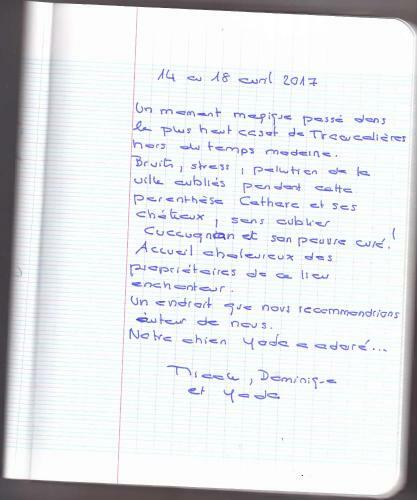 14 au 18 avril 2017
Un moment magique passé dans
le plus haut casot de Trescalières
hors du temps moderne.
Bruits, stress, pollution de la
ville oubliés pendant cette
parenthèse Cathare et ses
châteaux, sans oublier
Cucugnan et son pauvre curé !
Accueil chaleureux des
propriétaires de ce lieu
enchanteur.
Un endroit que nous recommandrions
autour de nous.
Notre chien Yoda a adoré...
Nicole, Dominique
et Yoda